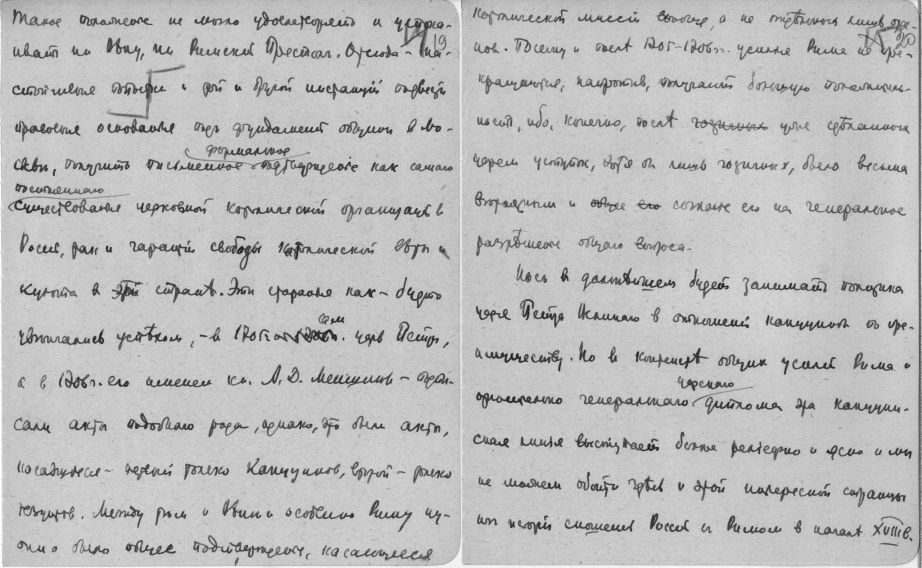 Такое положение не могло удовлетворять и устраи-
19
вать ни Вену, ни Римский Престол. Отсюда - на-
стойчивые попытки и той и другой инстанций подвести
правовые основания под фундамент общины в Мо-
формальное
скве, получить письменное подтверждение как самого
постоянного
существования церковной католической организаціи в
Россіи, так и гарантій свободы католической веры и
культа в этой странѣ. Эти старания как-будто
увенчались успѣхом, - в 1705 сам царь Петр,
а в 1706 г. его именем кн. А. Д. Меншиков - подпи-
сали акты подобного рода, однако, это были акты,
касавшиеся - первый только Капуцинов, второй - только
іезуитов. Между тем и Вене и особенно Риму ну-
жно было общее подтверждение, касающееся
католической миссіи вообще, а не отдѣльных лишь орде-
20
нов. Посему и послѣ 1705-1706 г. усилия Рима не пре-
кращаются, напротив, получают большую
ибо, конечно, послѣ уже сдѣланных
царем уступок, хотя бы лишь частичных, было весьма
и согласие его на генеральное
разрѣшение общего вопроса.
в дальнѣйшем будет занимать позиция
царя Петра Великого в отношении капуцинов по пре-
имуществу. Но в контекстѣ общих усилий Рима и
царского
относительно генерального диплома эта капуцин-
ская линия выступает более рельефно и ясно и мы
не можем обойти здѣсь и этой интересной страницы
из исторіи сношения Россіи с Римом в началѣ XVIII в.